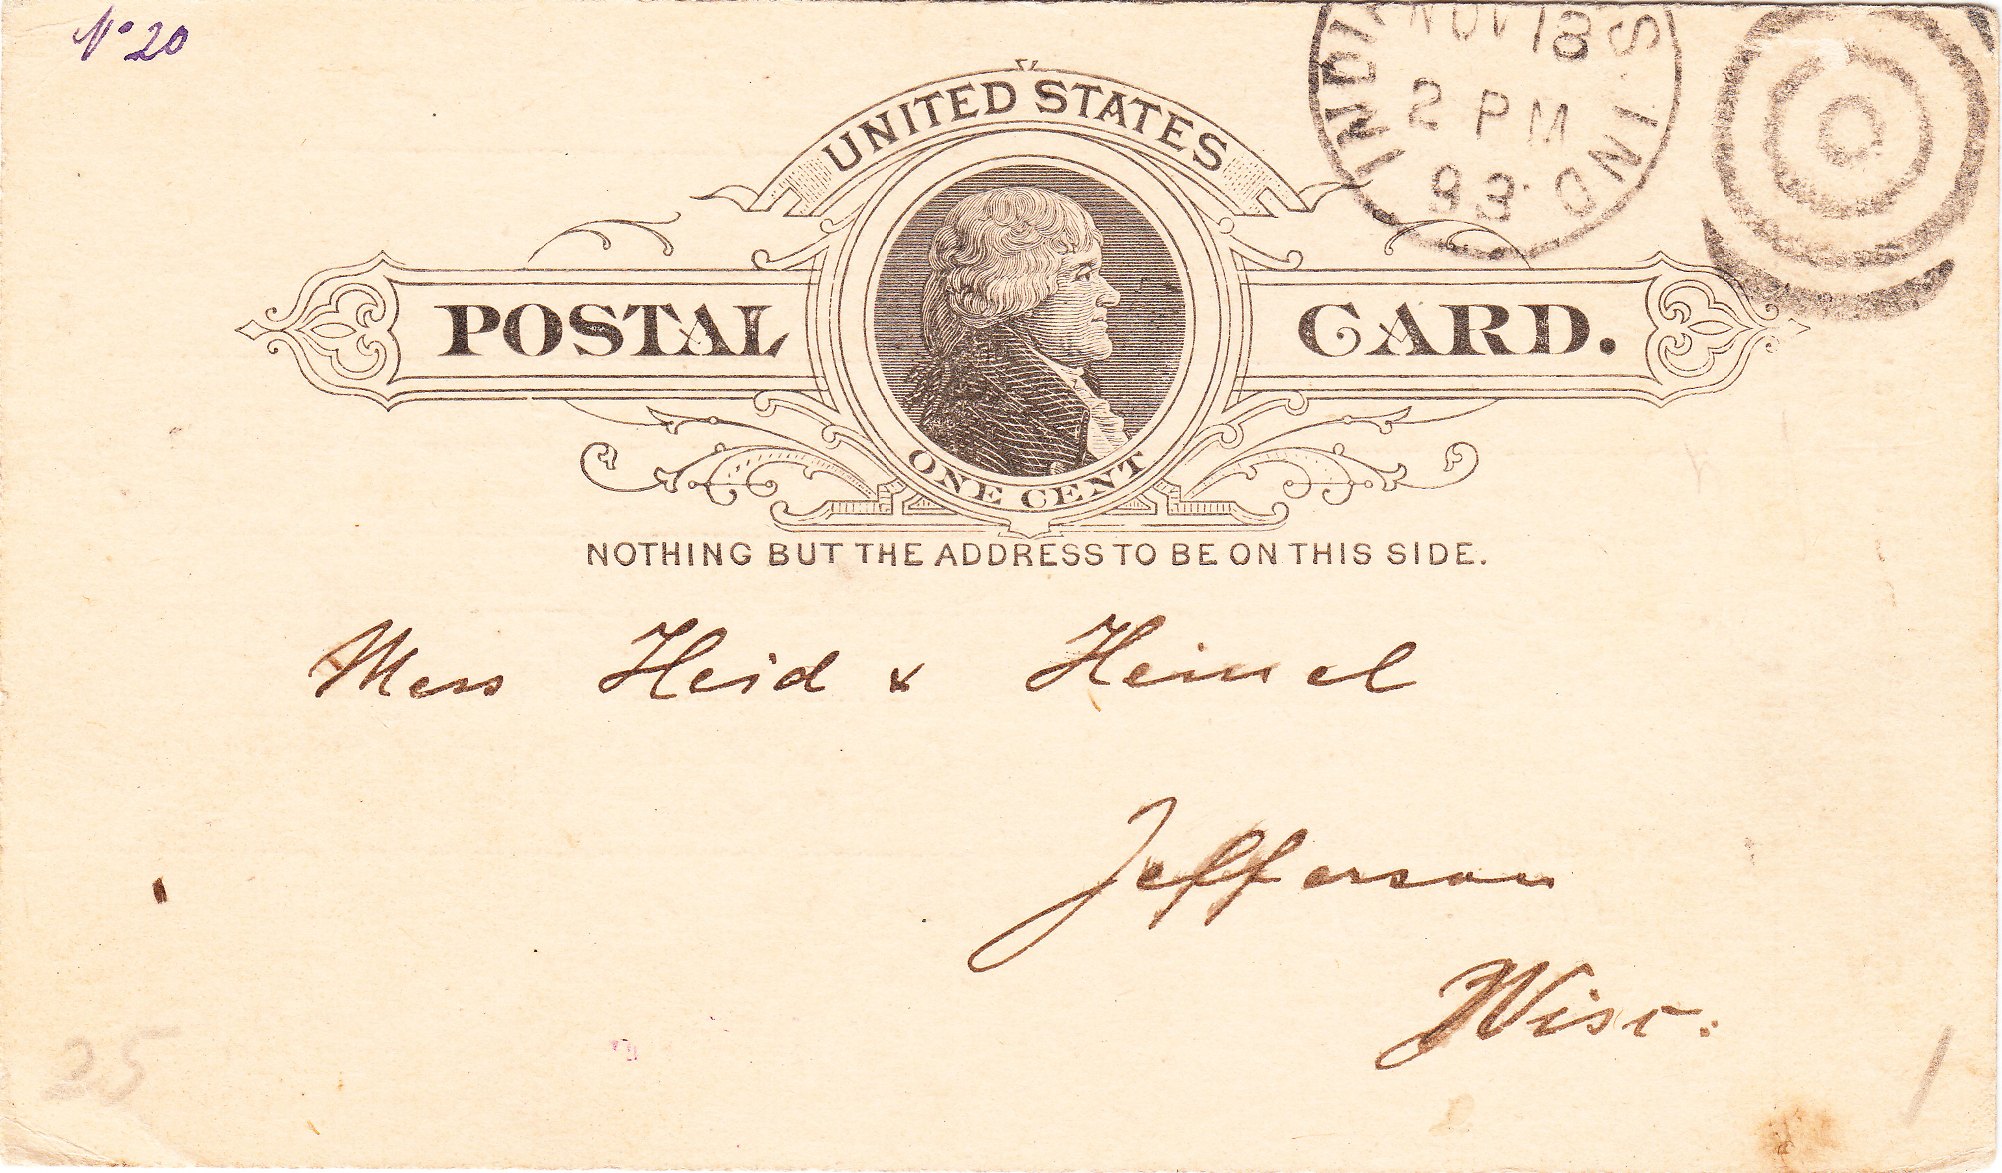 No 20
UNITED STATES
POSTAL CARD.
ONE CENT
NOTHING BUT THE ADDRESS TO BE ON THIS SIDE.
NOV 18
2 PM
93
IND.
Mess Heid & Heimel
Jefferson
Wisc.
25
1